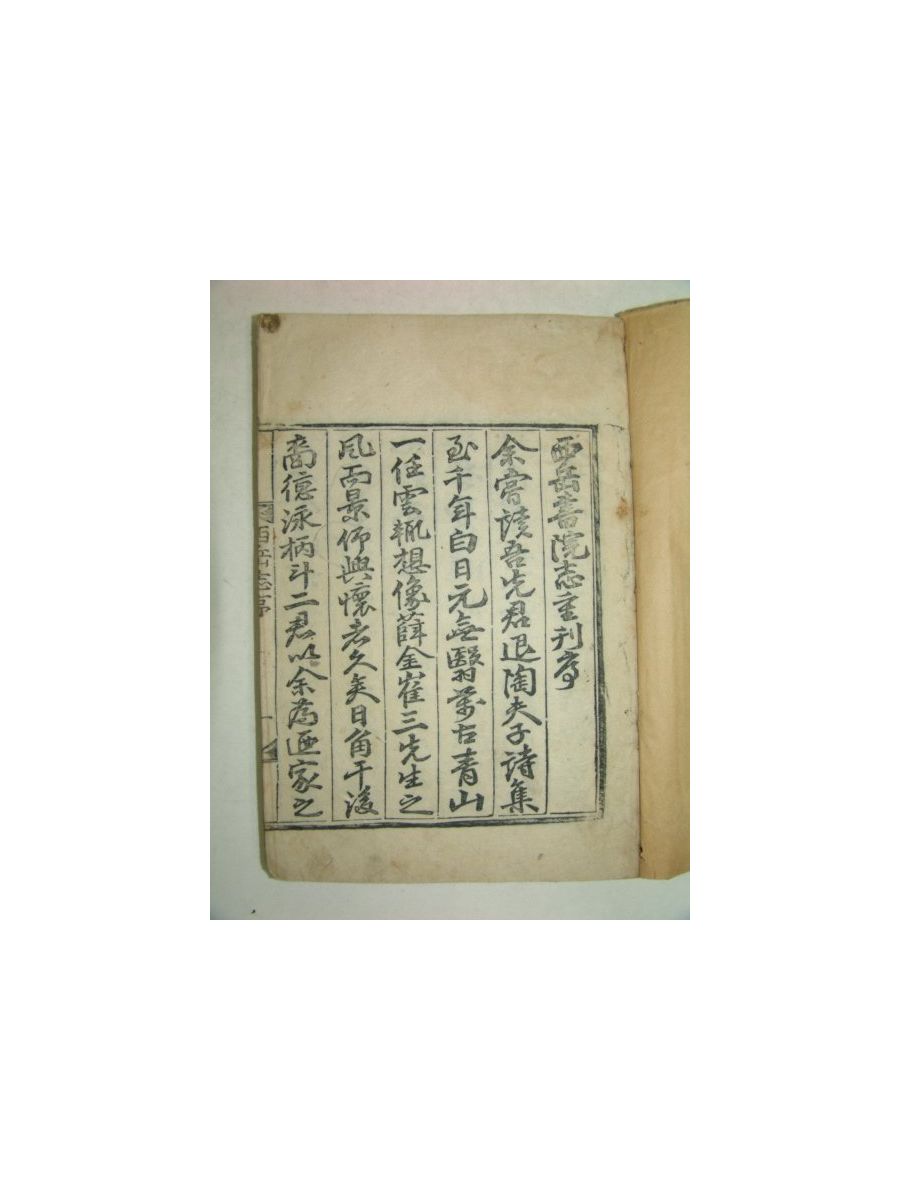 西岳書院志重刊序
余嘗讀吾先君退陶夫子詩集
至千年白日元無翳萬古青山
一任雲輒想像薛金崔三先生之
風而景仰興懷者久矣日角干後
裔德泳柄斗二君以余爲逥家之
西岳志序
一